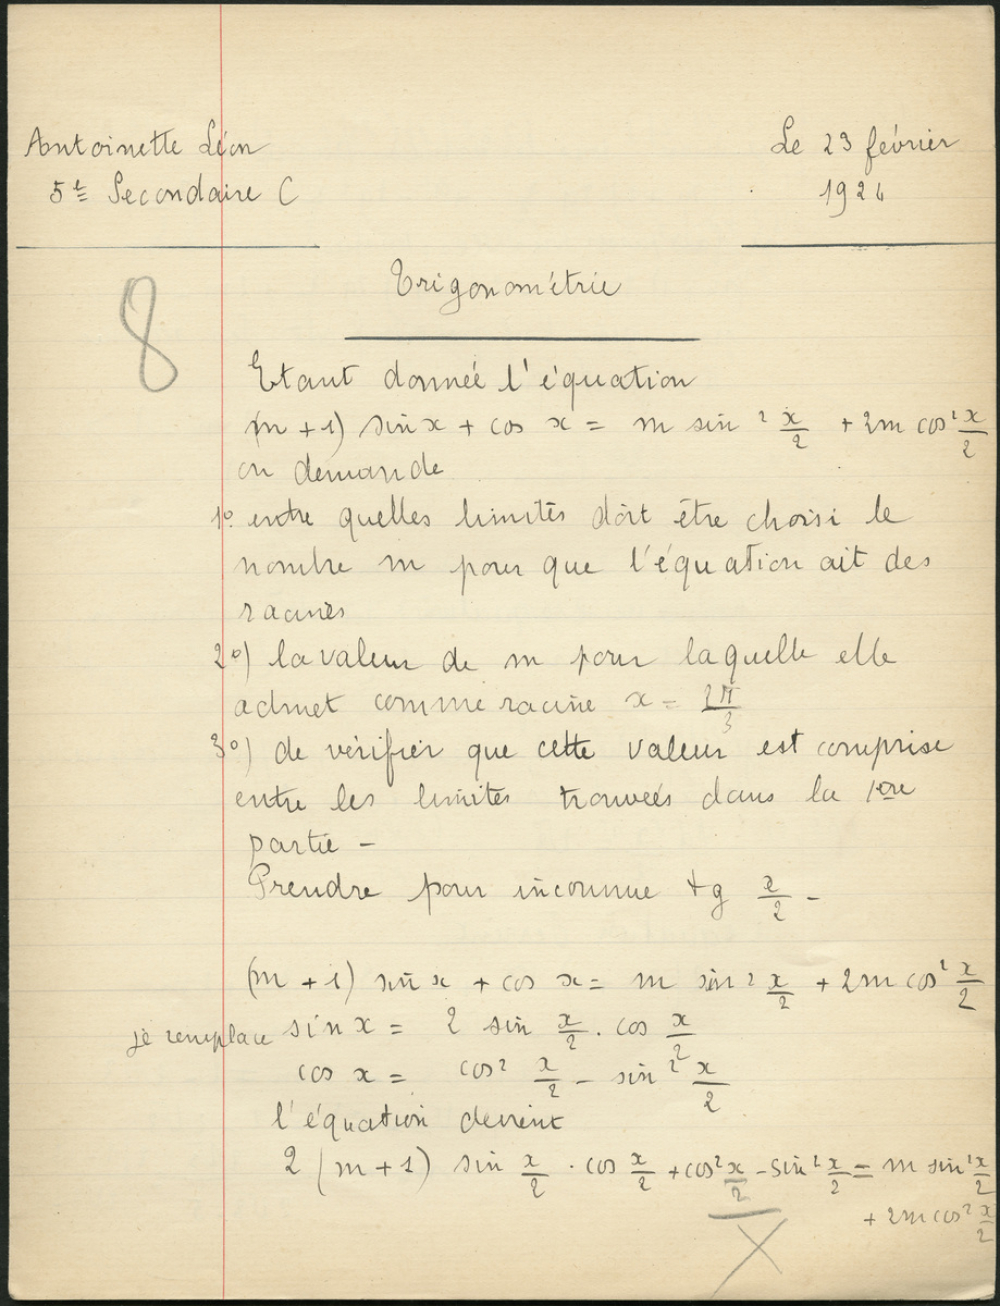 Antoinette Léon
Le 23 février
5e Secondaire C
1924
Trigonométrie
8
Etant donnée l'équation
(m + 1) sin x + cos x = m sin² x/2 + 2m cos² x/2
on demande
1º entre quelles limites doit être choisi le
nombre m pour que l'équation ait des
racines
2º) la valeur de m pour laquelle elle
admet comme racine x = 2π/3
3º) de vérifier que cette valeur est comprise
entre les limites trouvées dans la 1ère
partie -
Prendre pour inconnue tg x/2 -
(m + 1) sin x + cos x = m sin² x/2 + 2m cos² x/2
je remplace sin x = 2 sin x/2 . cos x/2
cos x = cos² x/2 - sin² x/2
l'équation devient
2 (m + 1) sin x/2 . cos x/2 + cos² x/2 - sin² x/2 = m sin² x/2
+ 2m cos² x/2